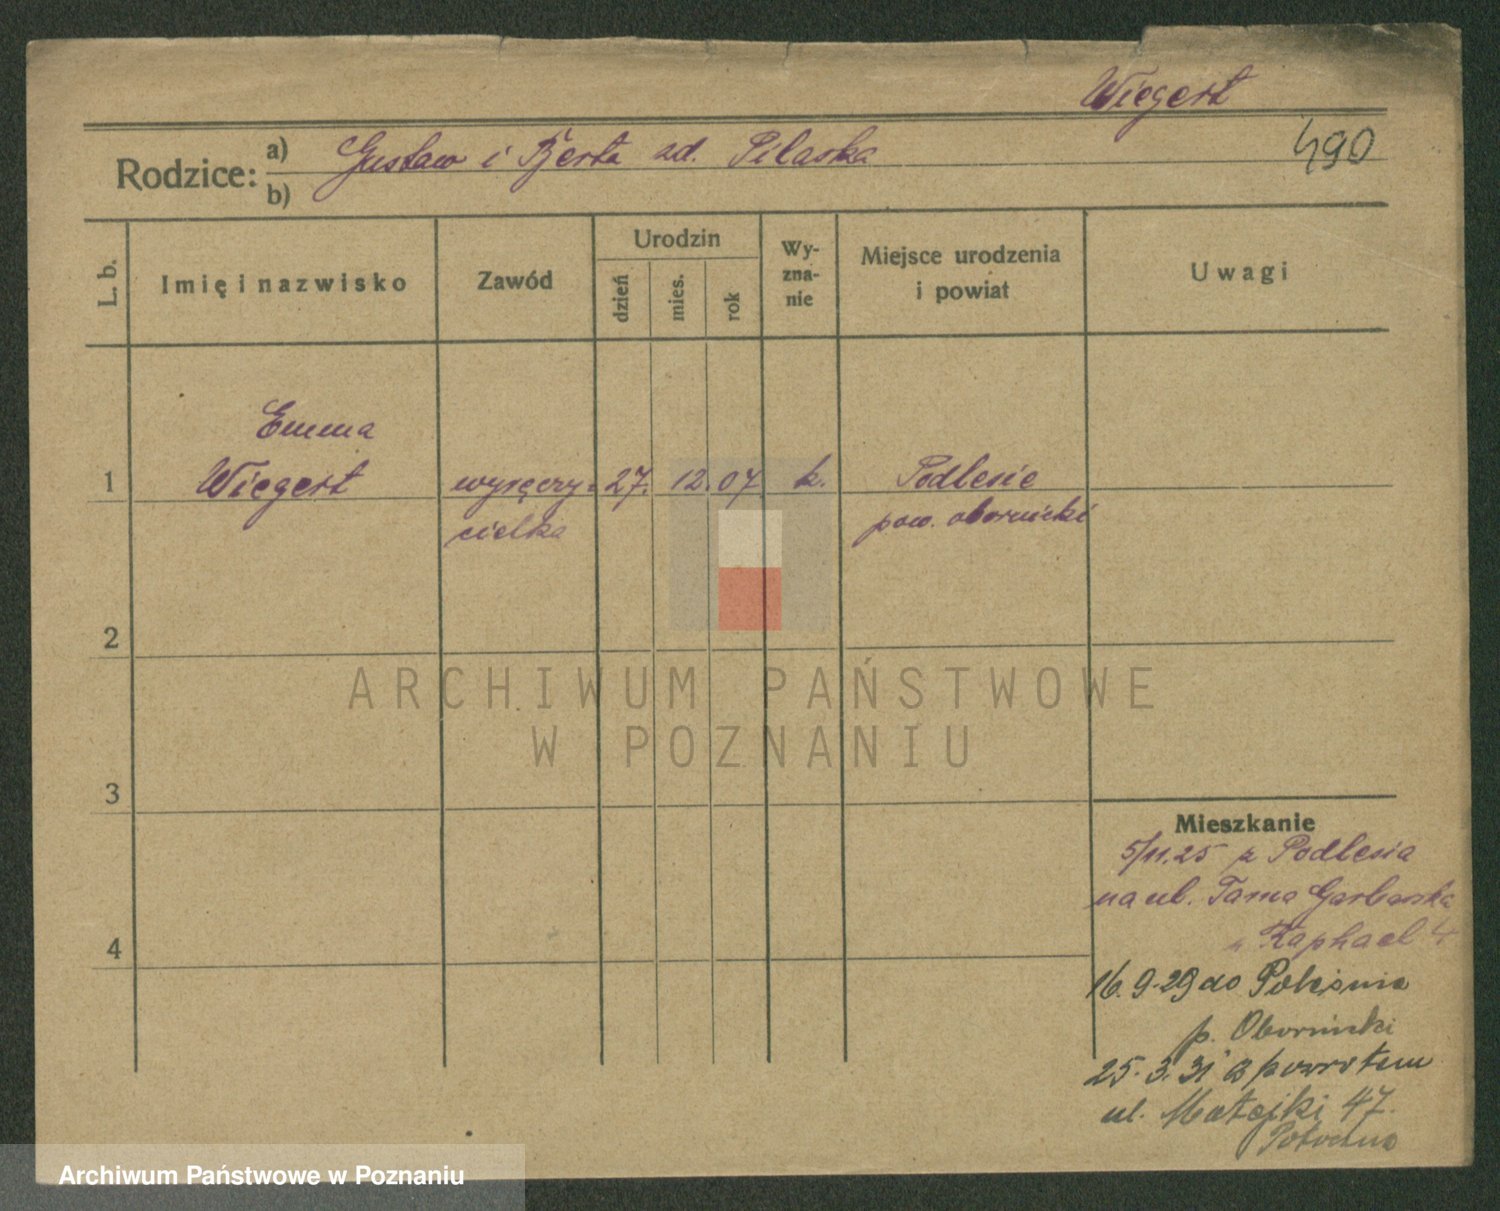 Wiegert
490
Rodzice: a) Gustaw i Berta zd. Pilaska
b)
L. b.
Imię i nazwisko
Zawód
Urodzin
dzień
mies.
rok
Wy-
zna-
nie
Miejsce urodzenia
i powiat
Uwagi
Emma
1 Wiegert wyręczy- 27. 12. 07 k. Podlesie
cielka pow. obornicki
2
3
4
ARCHIWUM PAŃSTWOWE
W POZNANIU
Mieszkanie
5/11.25 z Podlesia
na ul. Tama Garbarska
Raphael 4
16. 9.29 do
p. Obornicki
25. 3. 31 z powrotem
ul. Matejki 47.
Archiwum Państwowe w Poznaniu